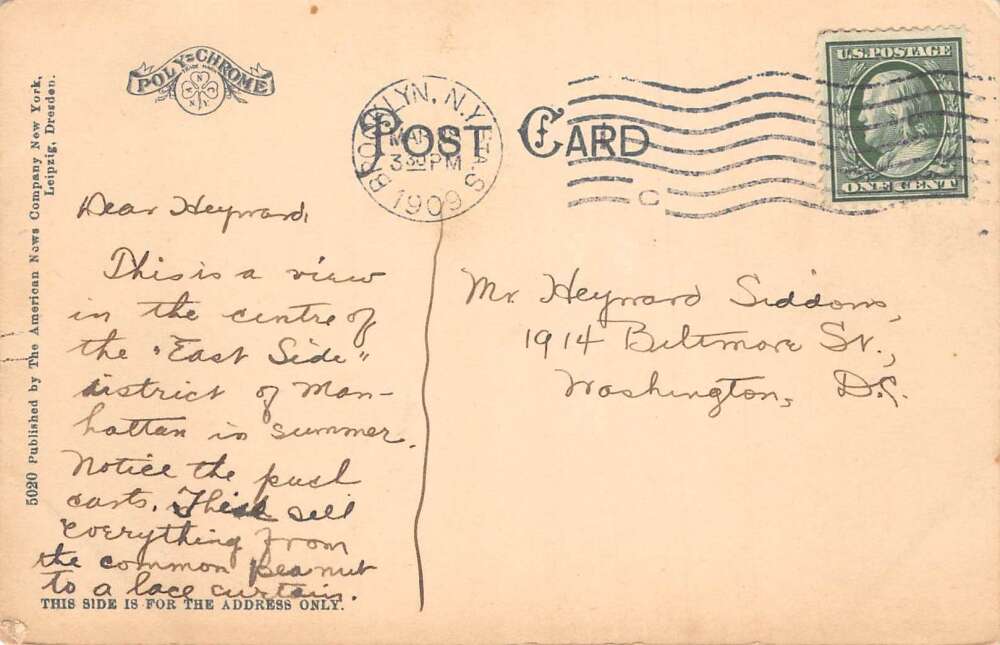 POLY=CHROME
5020 Published by The American News Company New York,
Leipzig, Dresden.
POST CARD
BROOKLYN, N.Y. STA. S
MAR
3 30 PM
1909
C
U.S. POSTAGE
ONE CENT
Dear Heyward,
This is a view
in the centre of
the "East Side"
district of Man-
hattan in summer.
Notice the push
carts. These sell
everything from
the common peanut
to a lace curtain.
THIS SIDE IS FOR THE ADDRESS ONLY.
Mr Heyward Siddons,
1914 Biltmore St.,
Washington, D.C.